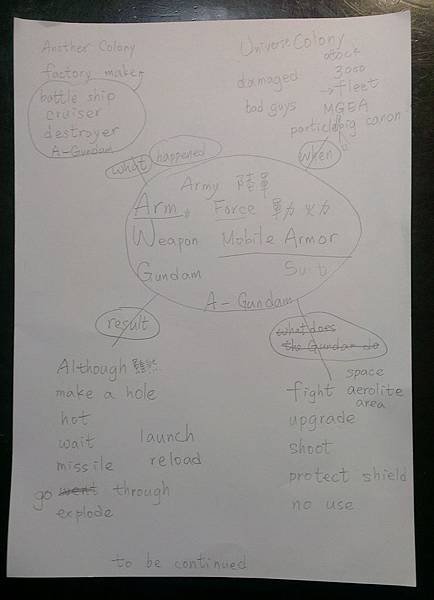 Another Colony
factory maker
battle ship
cruiser
destroyer
A-Gundam
Universe Colony
damaged
3000
→ fleet
bad guys MGEA
particle big canon
what happened
when
Army 陸軍
Arm Force 軍力 火力
Weapon Mobile Armor
Gundam Suit
A-Gundam
result
what does
the Gundam do
Although 雖然
make a hole
hot
wait launch
missile reload
go went through
explode
space
fight aerolite
area
upgrade
shoot
protect shield
no use
to be continued